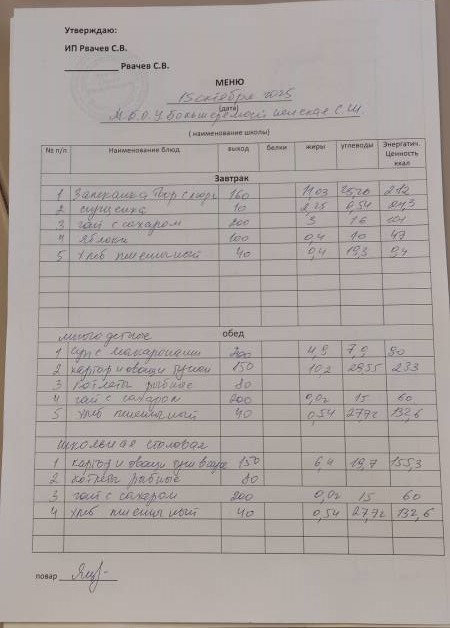 Утверждаю:
ИП Рвачев С.В.
Рвачев С.В.
МЕНЮ
15 октября 2025
(дата)
М.Б.О.У Большеремонтненская С.Ш.
( наименование школы)
№ п/п Наименование блюд выход белки жиры углеводы Энергатич. Ценность ккал
Завтрак
1 Запеканка твор с морк 160 11,03 212
2 сгущенка 10 2,25 6,54
3 чай с сахаром 200 3 16 101
4 Яблоки 100 0,4 10 47
5 Хлеб пшеничный 40 0,4 19,3 9,4
многодетное обед
1 суп с макаронами 200 4,9 7,9 90
2 картоф и овощи тушен 150 10,2 29,55 233
3 Котлеты рыбные 80
4 чай с сахаром 200 0,02 15 60
5 Хлб пшеничный 40 0,54 27,72 132,6
школьная столовая
1 картоф и овощи туш 150 6,4 19,7 155,3
2 котлеты рыбные 80
3 чай с сахаром 200 0,02 15 60
4 Хлб пшеничный 40 0,54 27,72 132,6
повар